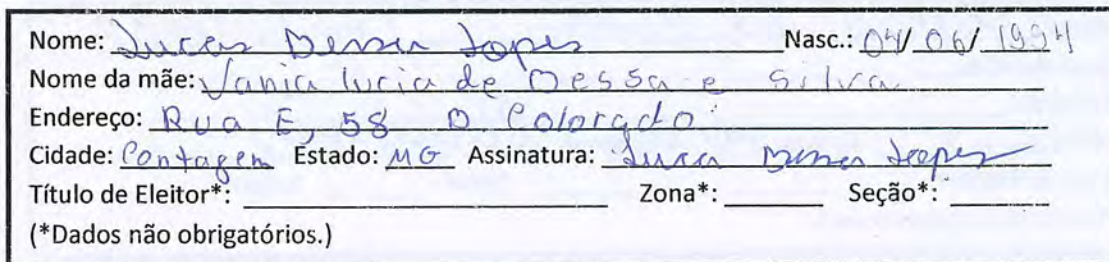 Nome: Lucas Dessa Lopes Nasc.: 04/06/1994
Nome da mãe: Vania lucia de Dessa e Silva
Endereço: Rua E, 58 D Colorado
Cidade: Contagem Estado: MG Assinatura: Lucas Dessa Lopes
Título de Eleitor*: Zona*: Seção*:
(*Dados não obrigatórios.)